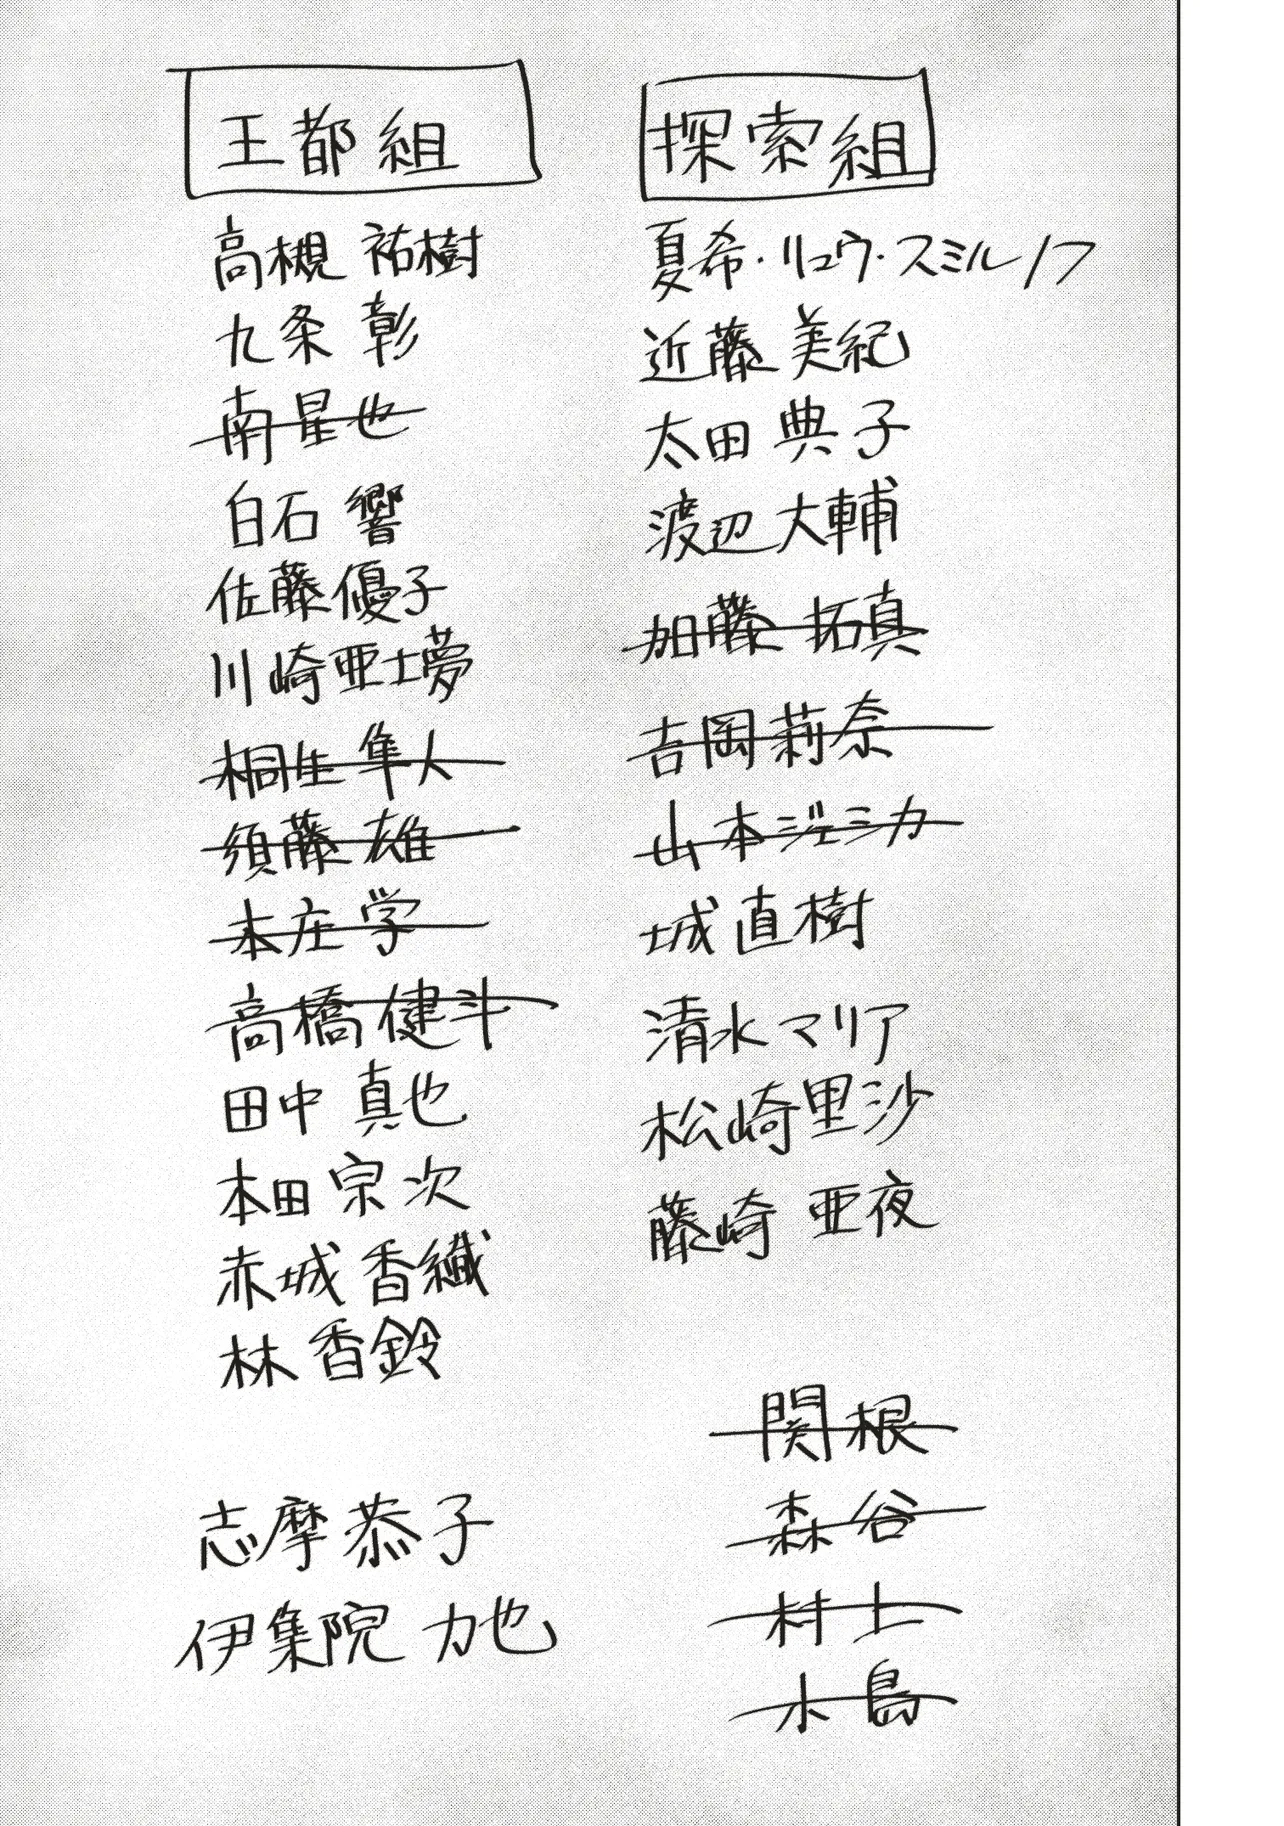 王都組
高槻 祐樹
九条 彰
南 星也
白石 響
佐藤優子
川崎亜土夢
桐生 隼人
須藤 雄
本庄 学
高橋 健斗
田中 真也
本田 宗次
赤城 香織
林 香鈴
志摩 恭子
伊集院 力也
探索組
夏希・リュウ・スミルノフ
近藤 美紀
太田 典子
渡辺 大輔
加藤 拓真
吉岡 莉奈
山本ジェシカ
城 直樹
清水 マリア
松崎里沙
藤崎 亜夜
関根
森谷
村上
小島